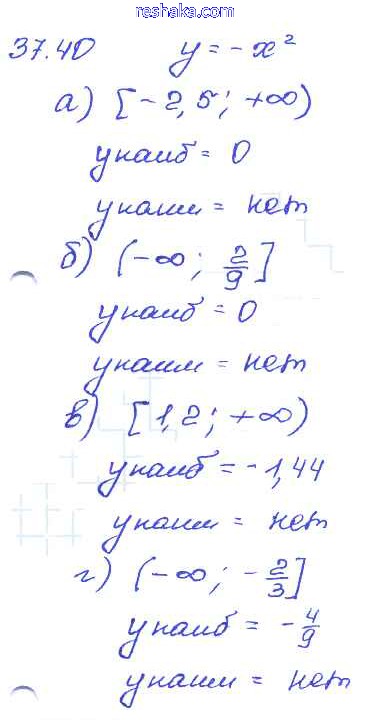 reshaka.com
37.40 y = -x²
а) [-2,5; +∞)
yнаиб = 0
yнаим = нет
б) (-∞; 2/9]
yнаиб = 0
yнаим = нет
в) [1,2; +∞)
yнаиб = -1,44
yнаим = нет
г) (-∞; -2/3]
yнаиб = -4/9
yнаим = нет